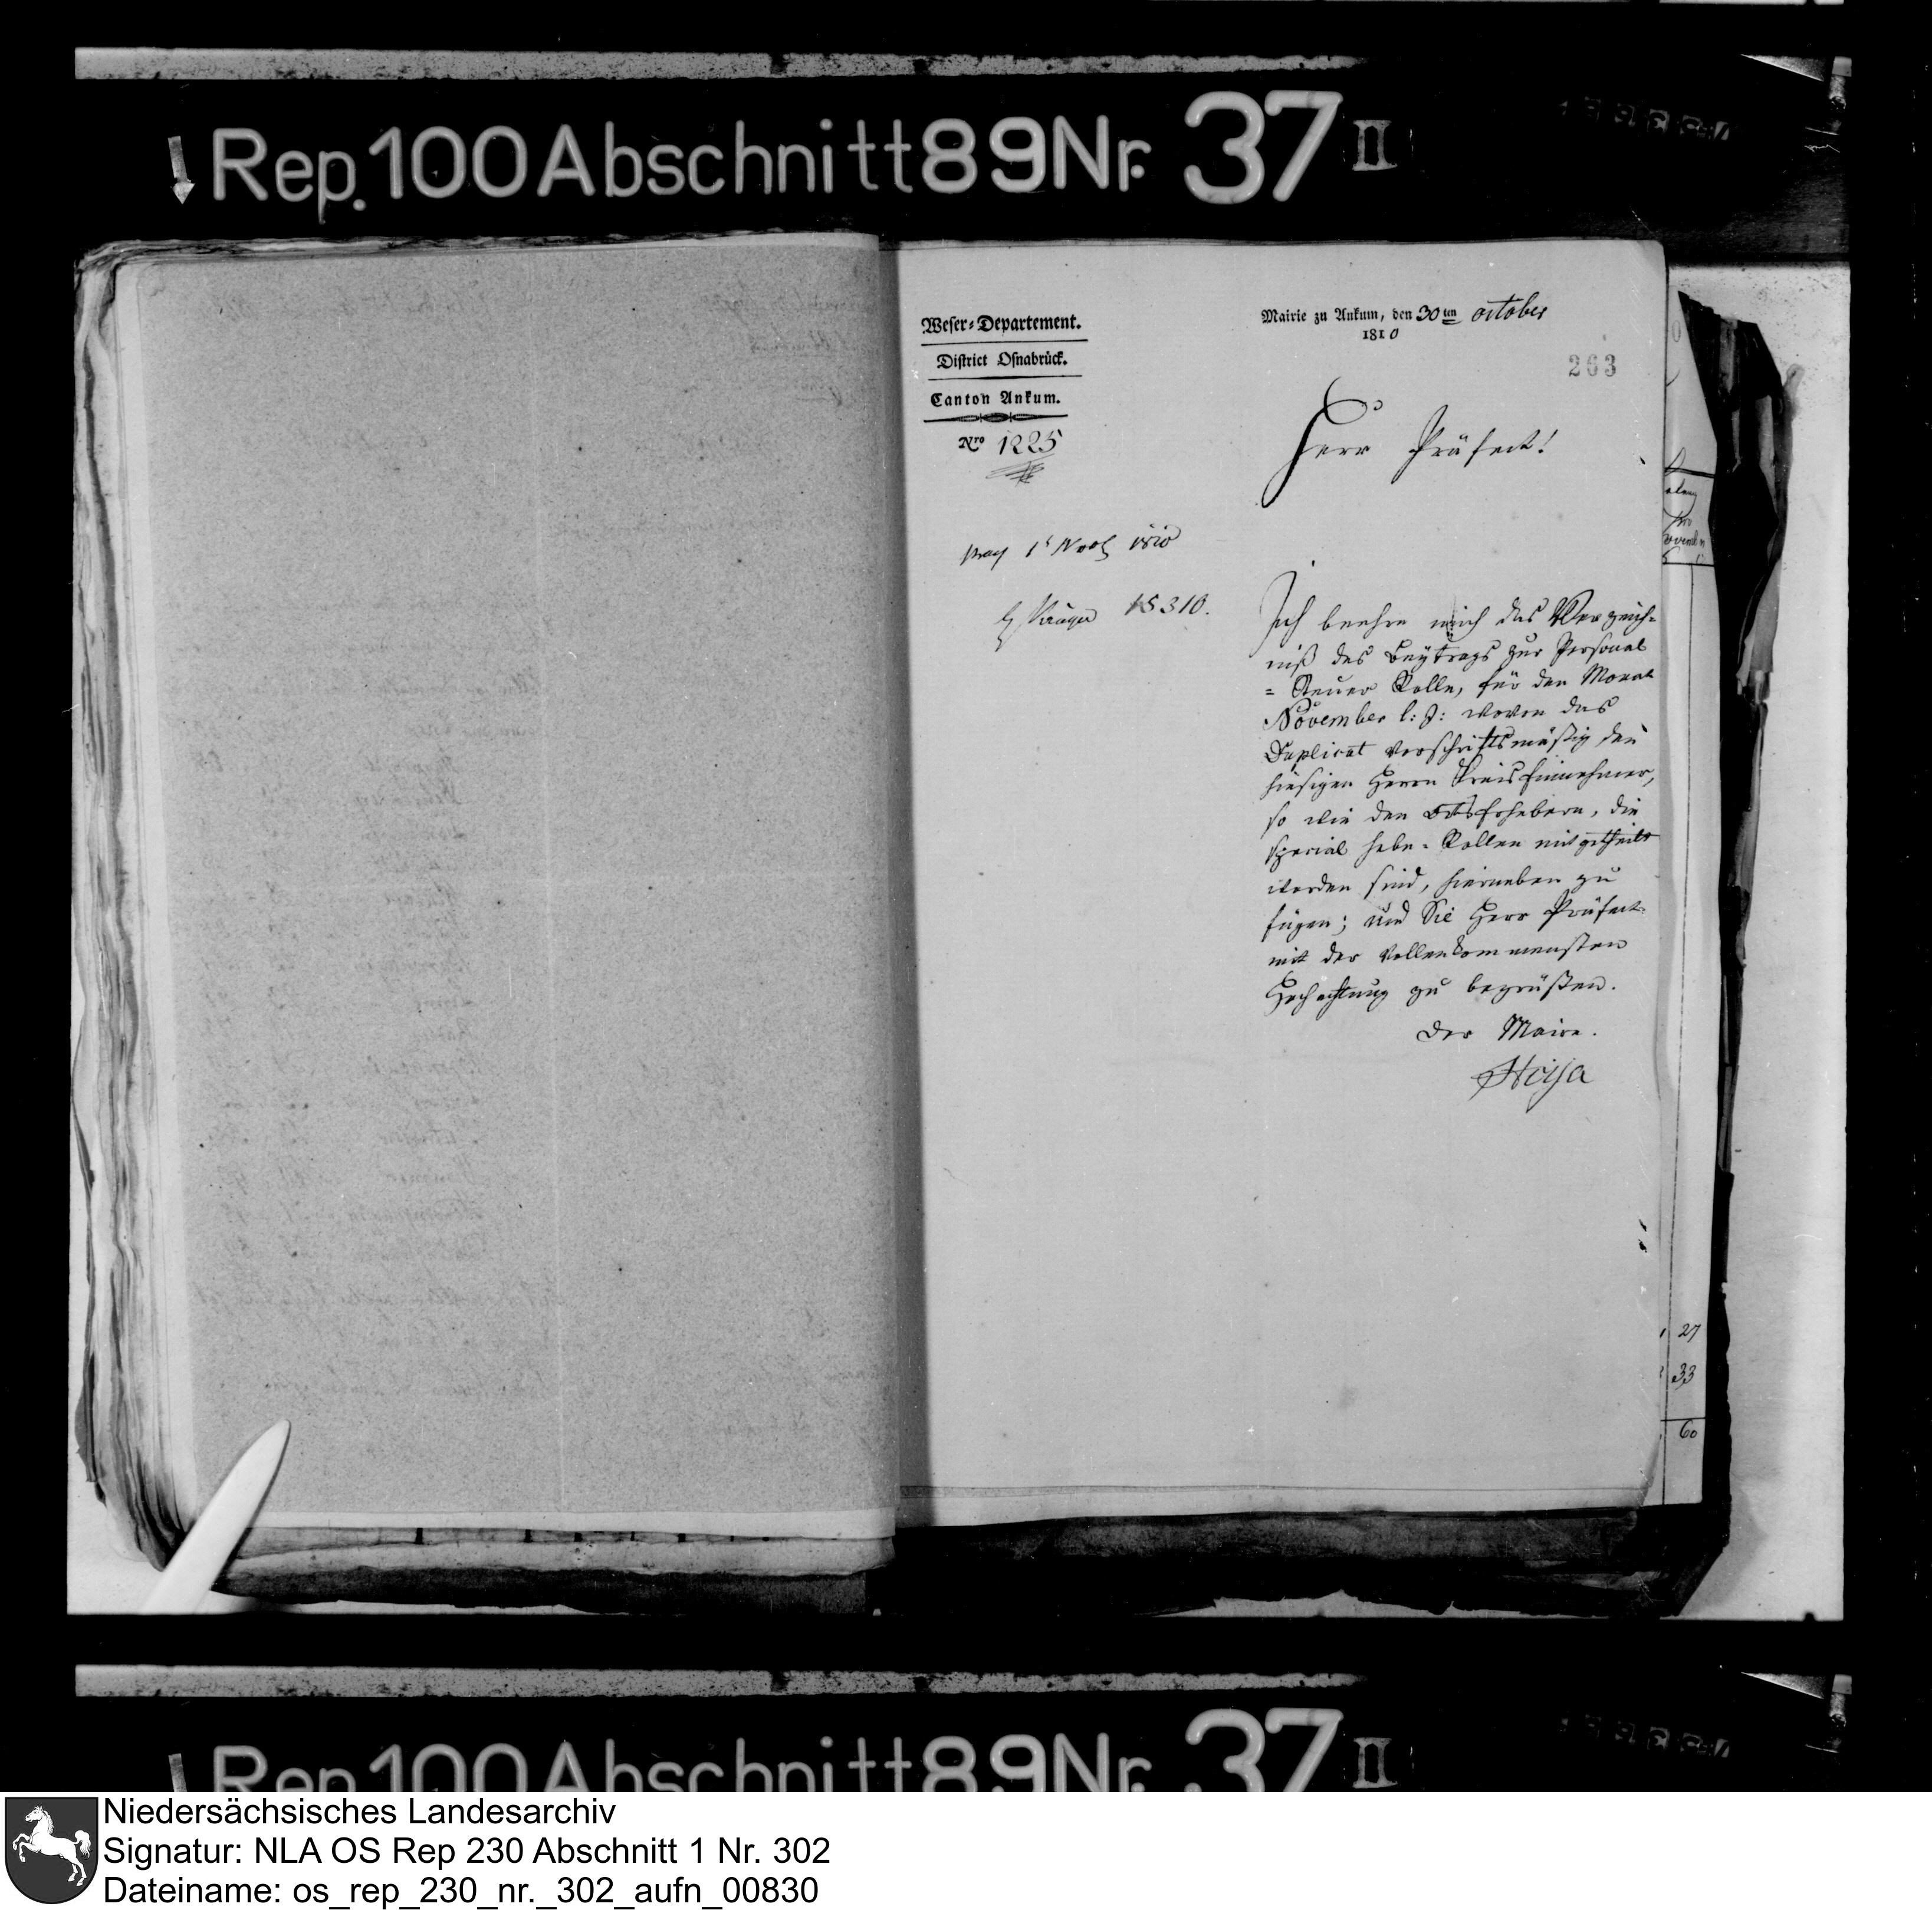 Rep. 100 Abschnitt 89 Nr. 37 II
Weser-Departement.
District Osnabrück.
Canton Ankum.
Nro 1225
Mairie zu Ankum, den 30ten october
1810
263
Herr Präfect!
1810
15310.
Ich beehre mich das Verzeich-
niß des Beytrags zur Personal
= Steuer Rolle, für den Monat
November l: J: wovon das
Duplicat vorschriftsmäßig dem
hiesigen Herrn Kreis Einnehmer,
so wie den Orts Erhebern, die
special Hebe-Rollen mitgetheilt
worden sind, hierneben zu
fügen; und Sie Herr Präfect
mit der vollenkommensten
Hochachtung zu begrüßen.
Der Maire.
27
33
60
Rep. 100 Abschnitt 89 Nr. 37 II
Niedersächsisches Landesarchiv
Signatur: NLA OS Rep 230 Abschnitt 1 Nr. 302
Dateiname: os_rep_230_nr._302_aufn_00830